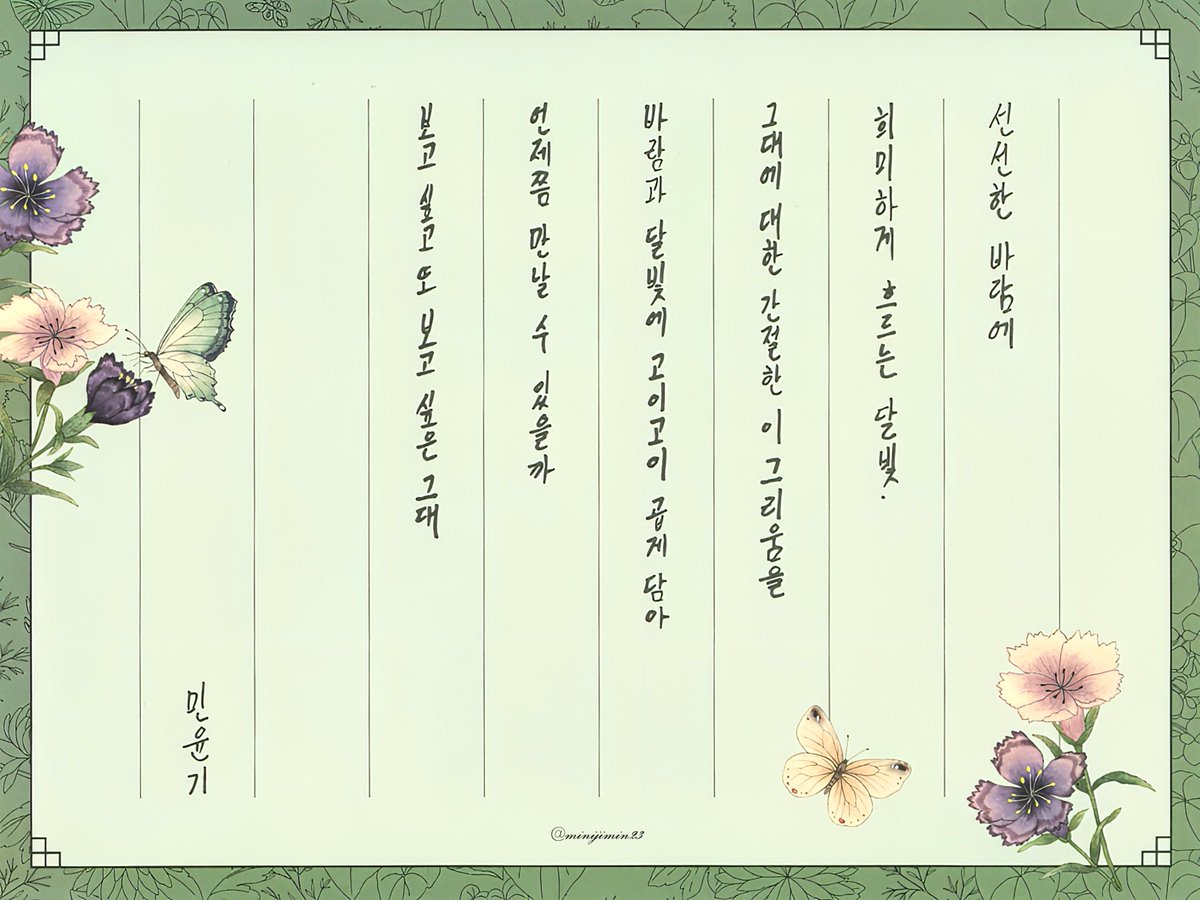 선선한 바람에
희미하게 흐르는 달빛.
그대에 대한 간절한 이 그리움을
바람과 달빛에 고이고이 곱게 담아
언제쯤 만날 수 있을까
보고 싶고 또 보고 싶은 그대
민윤기
@minijimin23